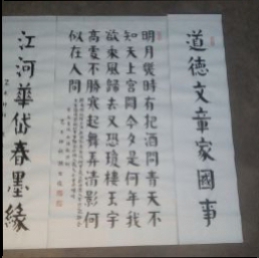 道德文章家國事
明月幾時有把酒問青天不
知天上宮闕今夕是何年我
欲乘風歸去又恐瓊樓玉宇
高處不勝寒起舞弄清影何
似在人間
江河華岱春墨緣